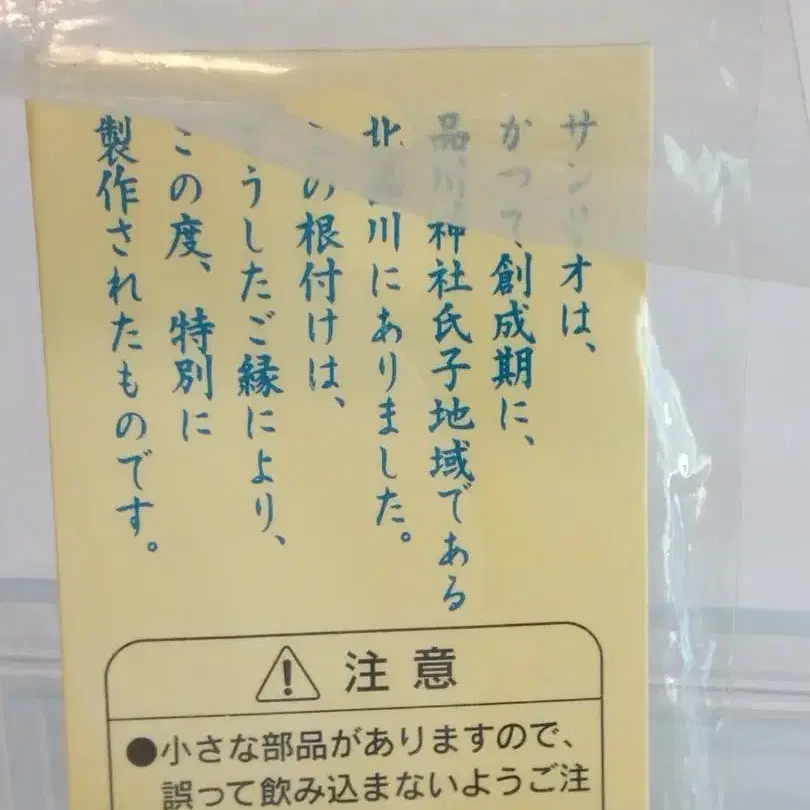 サンリオは、
かつて創成期に、
品川神社氏子地域である
北品川にありました。
この根付けは、
そうしたご縁により、
この度、特別に
製作されたものです。
注意
●小さな部品がありますので、
誤って飲み込まないようご注